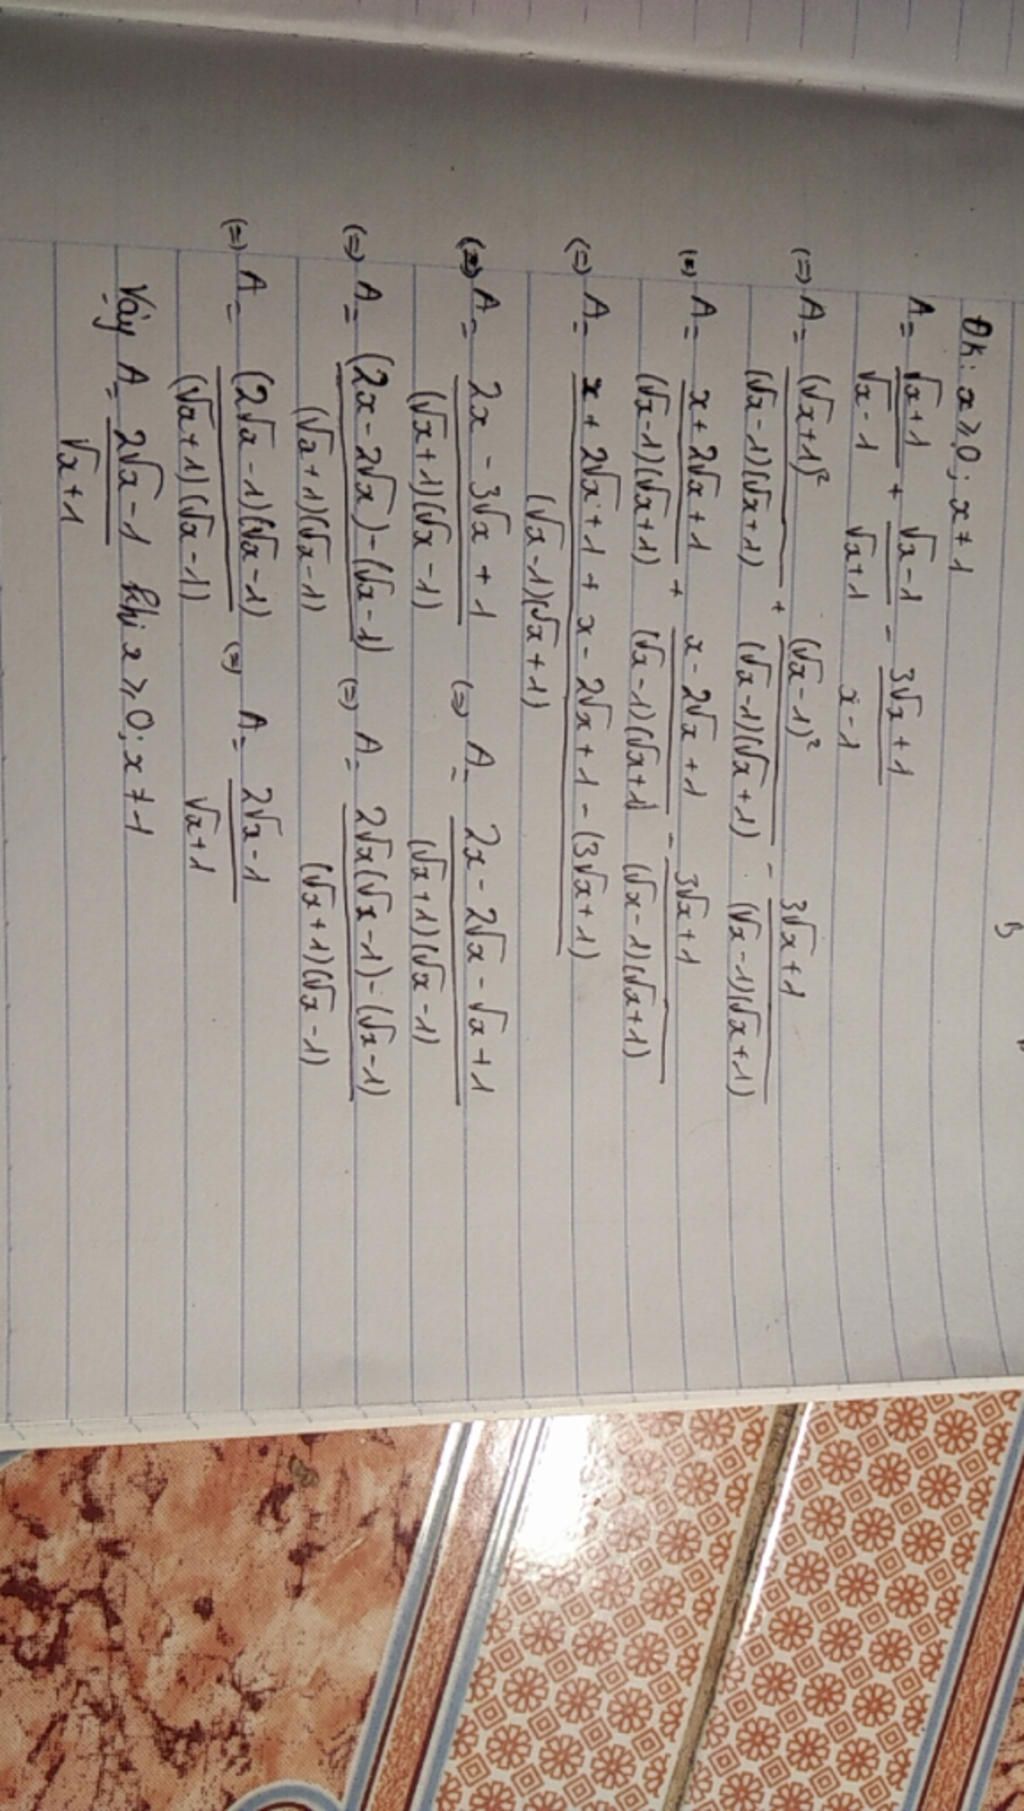 ĐK: x ≥ 0; x ≠ 1
A = (√x+1)/(√x-1) + (√x-1)/(√x+1) - (3√x+1)/(x-1)
(=) A = (√x+1)²/((√x-1)(√x+1)) + (√x-1)²/((√x-1)(√x+1)) - (3√x+1)/((√x-1)(√x+1))
(=) A = (x+2√x+1)/((√x-1)(√x+1)) + (x-2√x+1)/((√x-1)(√x+1)) - (3√x+1)/((√x-1)(√x+1))
(=) A = (x+2√x+1+x-2√x+1-(3√x+1))/((√x-1)(√x+1))
(=) A = (2x-3√x+1)/((√x+1)(√x-1)) (=) A = (2x-2√x-√x+1)/((√x+1)(√x-1))
(=) A = ((2x-2√x)-(√x-1))/((√x+1)(√x-1)) (=) A = (2√x(√x-1)-(√x-1))/((√x+1)(√x-1))
(=) A = ((2√x-1)(√x-1))/((√x+1)(√x-1)) (=) A = (2√x-1)/(√x+1)
Vậy A = (2√x-1)/(√x+1) khi x ≥ 0; x ≠ 1